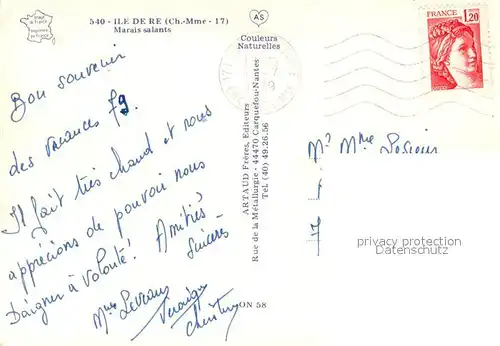 540 - ILE DE RE (Ch.-Mme - 17)
Marais salants
AS
Couleurs
Naturelles
FRANCE
1,20
Bon souvenir
des vacances 79.
Il fait très chaud et nous
apprécions de pouvoir nous
baigner à volonté! Amitiés
Sincères
Mme
ARTAUD Frères, Editeurs
Rue de la Métallurgie - 44470 Carquefou-Nantes
Tél. (40) 49.26.56
ON 58
Mr Mme
privacy protection